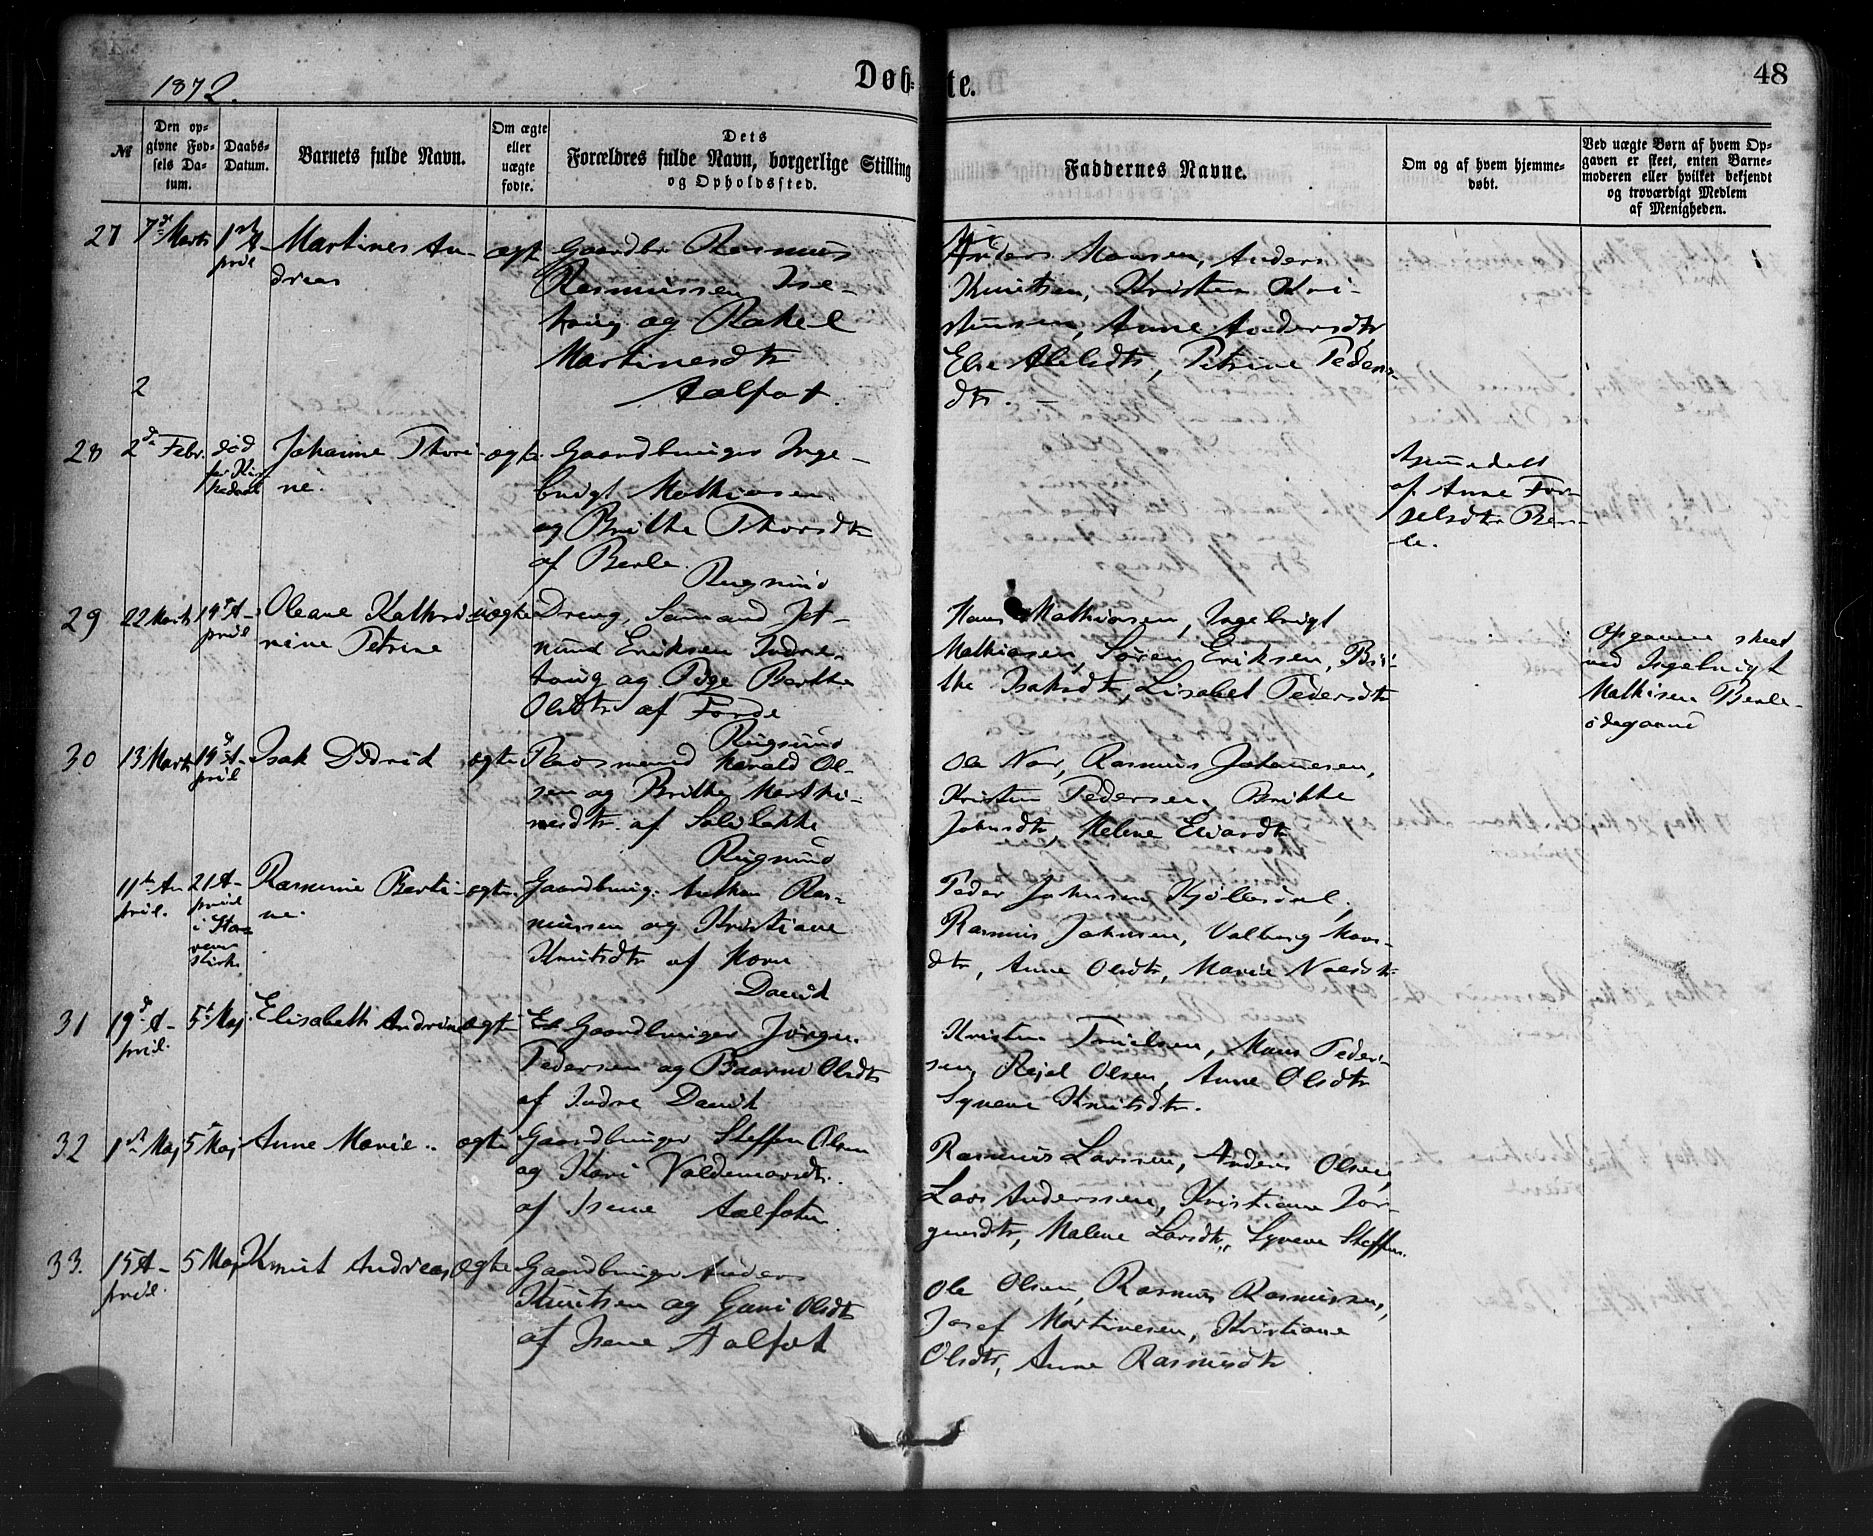 1872.
Døb-
te.
48
№
Den op-
givne Fød-
sels Da-
tum.
Daabs-
Datum.
Barnets fulde Navn.
Om ægte
eller
uægte
fødte.
Dets
Forældres fulde Navn, borgerlige Stilling
og Opholdssted.
Faddernes Navne.
Om og af hvem hjemme-
døbt.
Ved uægte Børn af hvem Op-
gaven er skeet, enten Barne-
moderen eller hvilket bekjendt
og troværdigt Medlem
af Menigheden.
27
7de Marts
1ste A-
pril
Martines An-
dreas
ægte
Gaardbr Rasmus
Rasmussen Ise-
og Rakel
Martinesdtr
Aalfot.
Mons Monsen, Anders
Knutsen, Kristen Kri-
stensen, Anne Andersdtr
Else Abelsdtr, Petrine Peders-
dtr. —
2
28
2den Febr.
død
før Kir-
kedaab
Johanne Thori-
ne.
ægte
Gaardbruger Inge-
brigt Mathiasen
og Brithe Thorsdtr
af Berle.
Rugsund
Hjemmedøbt
af Anne
Ber-
le.
29
22 Marts
14de A-
pril
Oleane Kathri-
nine Petrine
uægte
Dreng, Sømand Jet-
mund Eriksen Indre-
og Pige Berthe
Olsdtr af Førde
Rugsund
Hans Mathiasen, Ingebrigt
Mathiasen, Søren Eriksen, Bri-
the Isaksdtr, Lisabet Pedersdtr
Opgaven skeet
ved Ingebrigt
Mathisen Berle-
ødegaard
30
13 Marts
14de A-
pril
Isak Didrik
ægte
Pladsmand Harald Ol-
sen og Brithe Marthi-
nesdtr. af
Rugsund
Ole Nor, Rasmus Johannesen,
Kristen Pedersen, Brithe
Johnsdtr, Helene Evardtr
11te A-
pril.
21 A-
pril
i Da-
vik
Kirke
Rasmine Berti-
ne.
ægte
Gaardbrug. Anthon Ras-
mussen og Kristiane
Knutsdtr af Horn
Davik
Peder Johnsen Kjøllesdal,
Rasmus Johnsen, Valborg Mons-
dtr, Anne Olsdtr, Marie Nilsdtr
31
19de A-
pril.
5te Maj
Elisabeth Andrine
ægte
Gaardbruger Jørgen
Pedersen og Olsdtr
af Indre Davik
Kristen Truelsen, Mons Peder-
sen, Rejel Olsen, Anne Olsdtr
Synneve Knutsdtr.
32
1ste Maj
5te Maj
Anne Marie.
ægte
Gaardbruger Steffen Olsen
og Kari Valdemarsdtr.
af Isene Aalfoten.
Rasmus Larsen, Anders Olsen,
Lars Anderssen, Kristiane Jør-
gensdtr, Malene Larsdtr, Synneve Steffen.
33.
15 A-
pril.
5 Maj
Knut Andreas
ægte
Gaardbruger Anders
Knutsen og Guri Olsdtr
af Isene Aalfot
Ole Olsen, Rasmus Rasmussen,
Josef Martinesen, Kristiane
Olsdtr, Anne Rasmusdtr